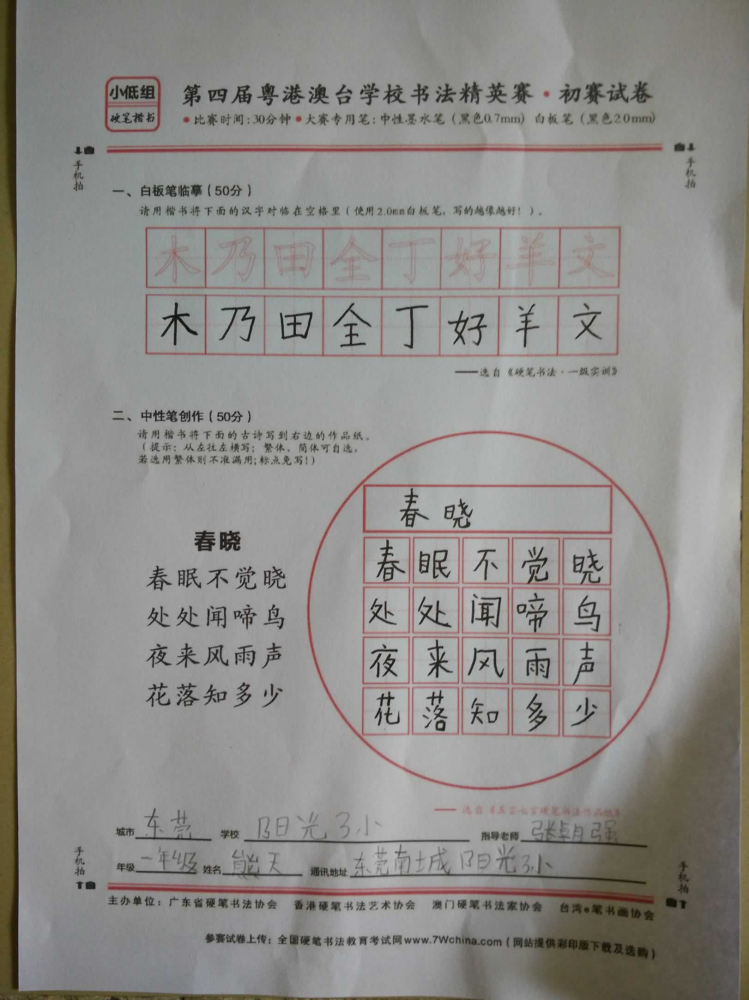 小低组
硬笔楷书
第四届粤港澳台学校书法精英赛·初赛试卷
•比赛时间:30分钟•大赛专用笔:中性墨水笔(黑色0.7mm) 白板笔(黑色2.0mm)
手机拍
手机拍
一、白板笔临摹(50分)
请用楷书将下面的汉字对临在空格里(使用2.0mm白板笔,写的越像越好!)。
木乃田全丁好羊文
木乃田全丁好羊文
——选自《硬笔书法·一级实训》
二、中性笔创作(50分)
请用楷书将下面的古诗写到右边的作品纸。
(提示:从左往右横写;繁体、简体可自选,
若选用繁体则不准漏用;标点免写!)
春晓
春眠不觉晓
处处闻啼鸟
夜来风雨声
花落知多少
春晓
春眠不觉晓
处处闻啼鸟
夜来风雨声
花落知多少
城市 东莞 学校 阳光3小 指导老师 张朝强
年级 一年级 姓名 熊天 通讯地址 东莞南城阳光3小
手机拍
手机拍
主办单位:广东省硬笔书法协会 香港硬笔书法艺术协会 澳门硬笔书法家协会 台湾e笔书画协会
参赛试卷上传:全国硬笔书法教育考试网www.7Wchina.com(网站提供彩印版下载及选购)